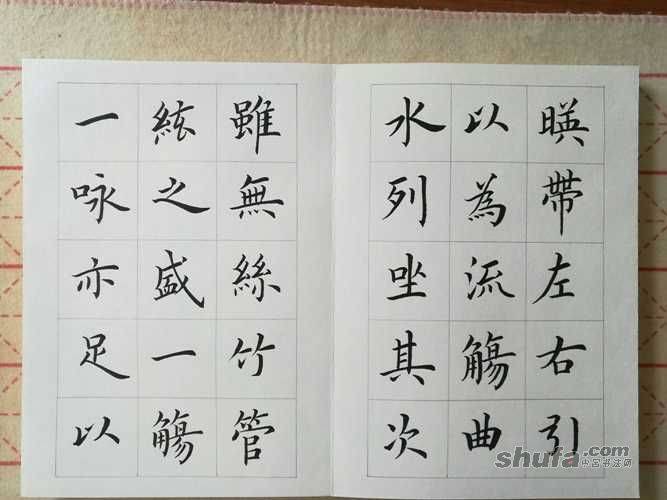 暎帶左右引
以為流觴曲
水列坐其次
雖無絲竹管
絃之盛一觴
一咏亦足以
shufa.com
中宫书法网